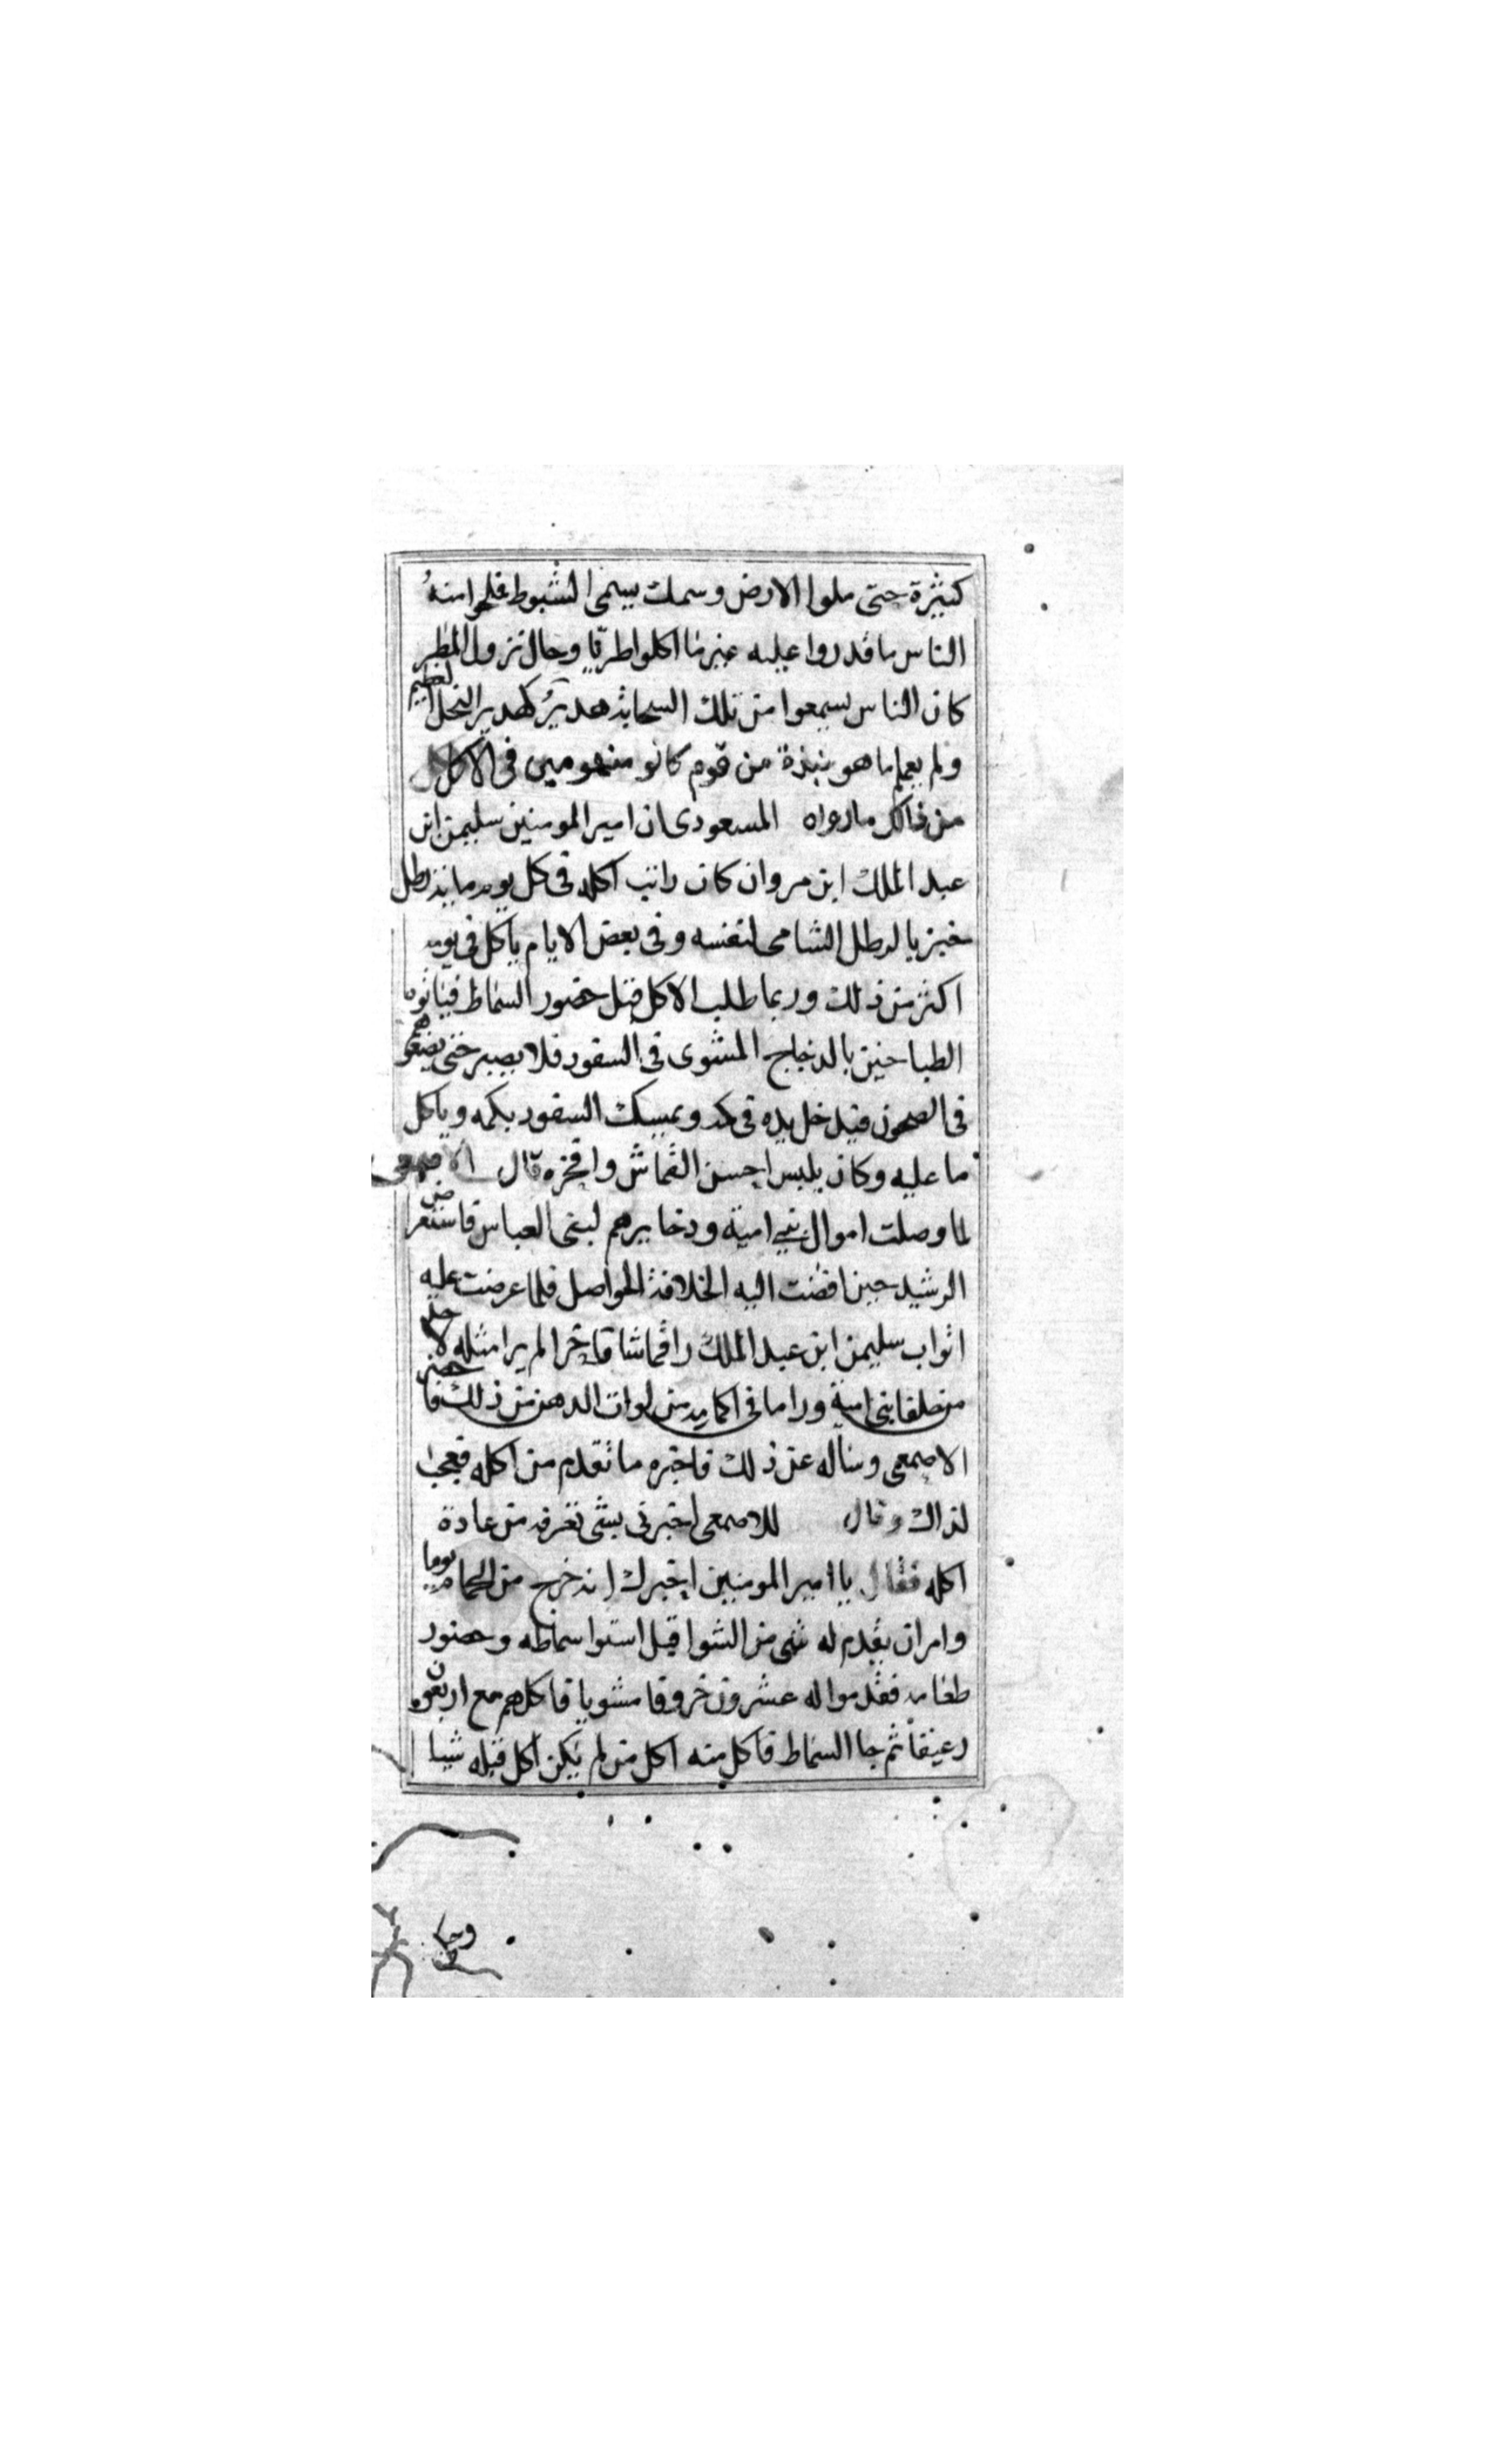 كثيرة حتى ملوا الارض وسمك يسمى الشبوط فملحوا منهُ
الناس ما قدروا عليه غير ما اكلوا طريّا وحال نزول المطر
كان الناس يسمعوا من تلك السحابة هديرٌ كهدير النحل العظيم
ولم يعلم ما هو نبذة من قوم كانو منهومين فى الاكل
من ذالك ما رواه المسعودى ان امير المومنين سليمن ابن
عبد الملك ابن مروان كان راتب اكله فى كل يوم ماية رطل
خبز بالرطل الشامى لنفسه وفى بعض الايام ياكل فى يومه
اكثر من ذلك وربما طلب الاكل قبل حضور السماط فياتوه
الطباخين بالدجاج المشوى فى السفود فلا يصبر حتى يضعوهم
فى الصحون فيدخل يده فى كمه ويمسك السفود بكمه وياكل
ما عليه وكان يلبس احسن القماش وافخره قال الاصمعى
لما وصلت اموال بني امية ودخايرهم لبنى العباس فاستعرض
الرشيد حين افضت اليه الخلافة الحواصل فلما عرضت عليه
اثواب سليمن ابن عبد الملك را قماشا فاخرا لم يرا مثله لاحد
من خلفا بنى امية ورا ما فى اكمامه من لوات الدهن من ذلك فاحضر
الاصمعى وساله عن ذلك فاخبره ما تقدم من اكله فعجب
لذاك وقال للاصمعى اخبرنى بشى تعرفه من عادة
اكله فقال يا امير المومنين اخبرك انه خرج من الحمام يوما
وامر ان يقدم له شى من الشوا قبل استوا سماطه وحضور
طعامه فقدموا له عشرون خروفا مشويا فاكلهم مع اربعون
رغيفاً ثم جا السماط فاكل منه اكل من لم يكن اكل قبله شيا
وحكا